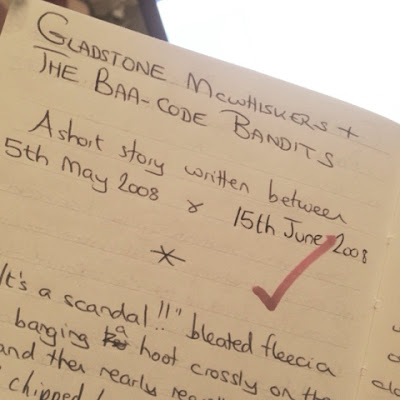 GLADSTONE MCWHISKERS +
THE BAA-CODE BANDITS
A short story written between
5th May 2008 & 15th June 2008
*
"It's a scandal!!" bleated fleecia
banging a hoot crossly on the
and then nearly
chipped